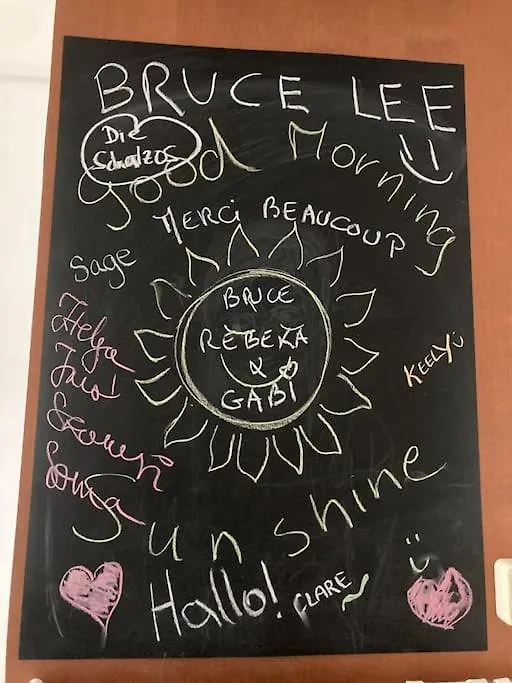 BRUCE LEE
Die
Schatzos
Good Morning
MERCi BEAUCOUP
Sage
BRUCE
REBEKA
&
GABI
Helga
KEELY
Sonja
Sunshine
Hallo!
CLARE